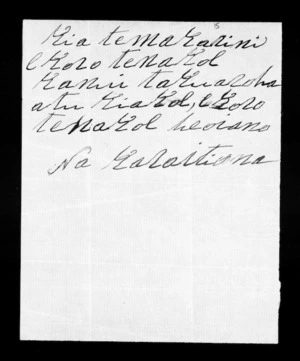 Kia te makarini
e Koro tena Koe
Ka nui taku aroha
atu kia Koe, e Koro
tena Koe heoiano
Na Karaitiana